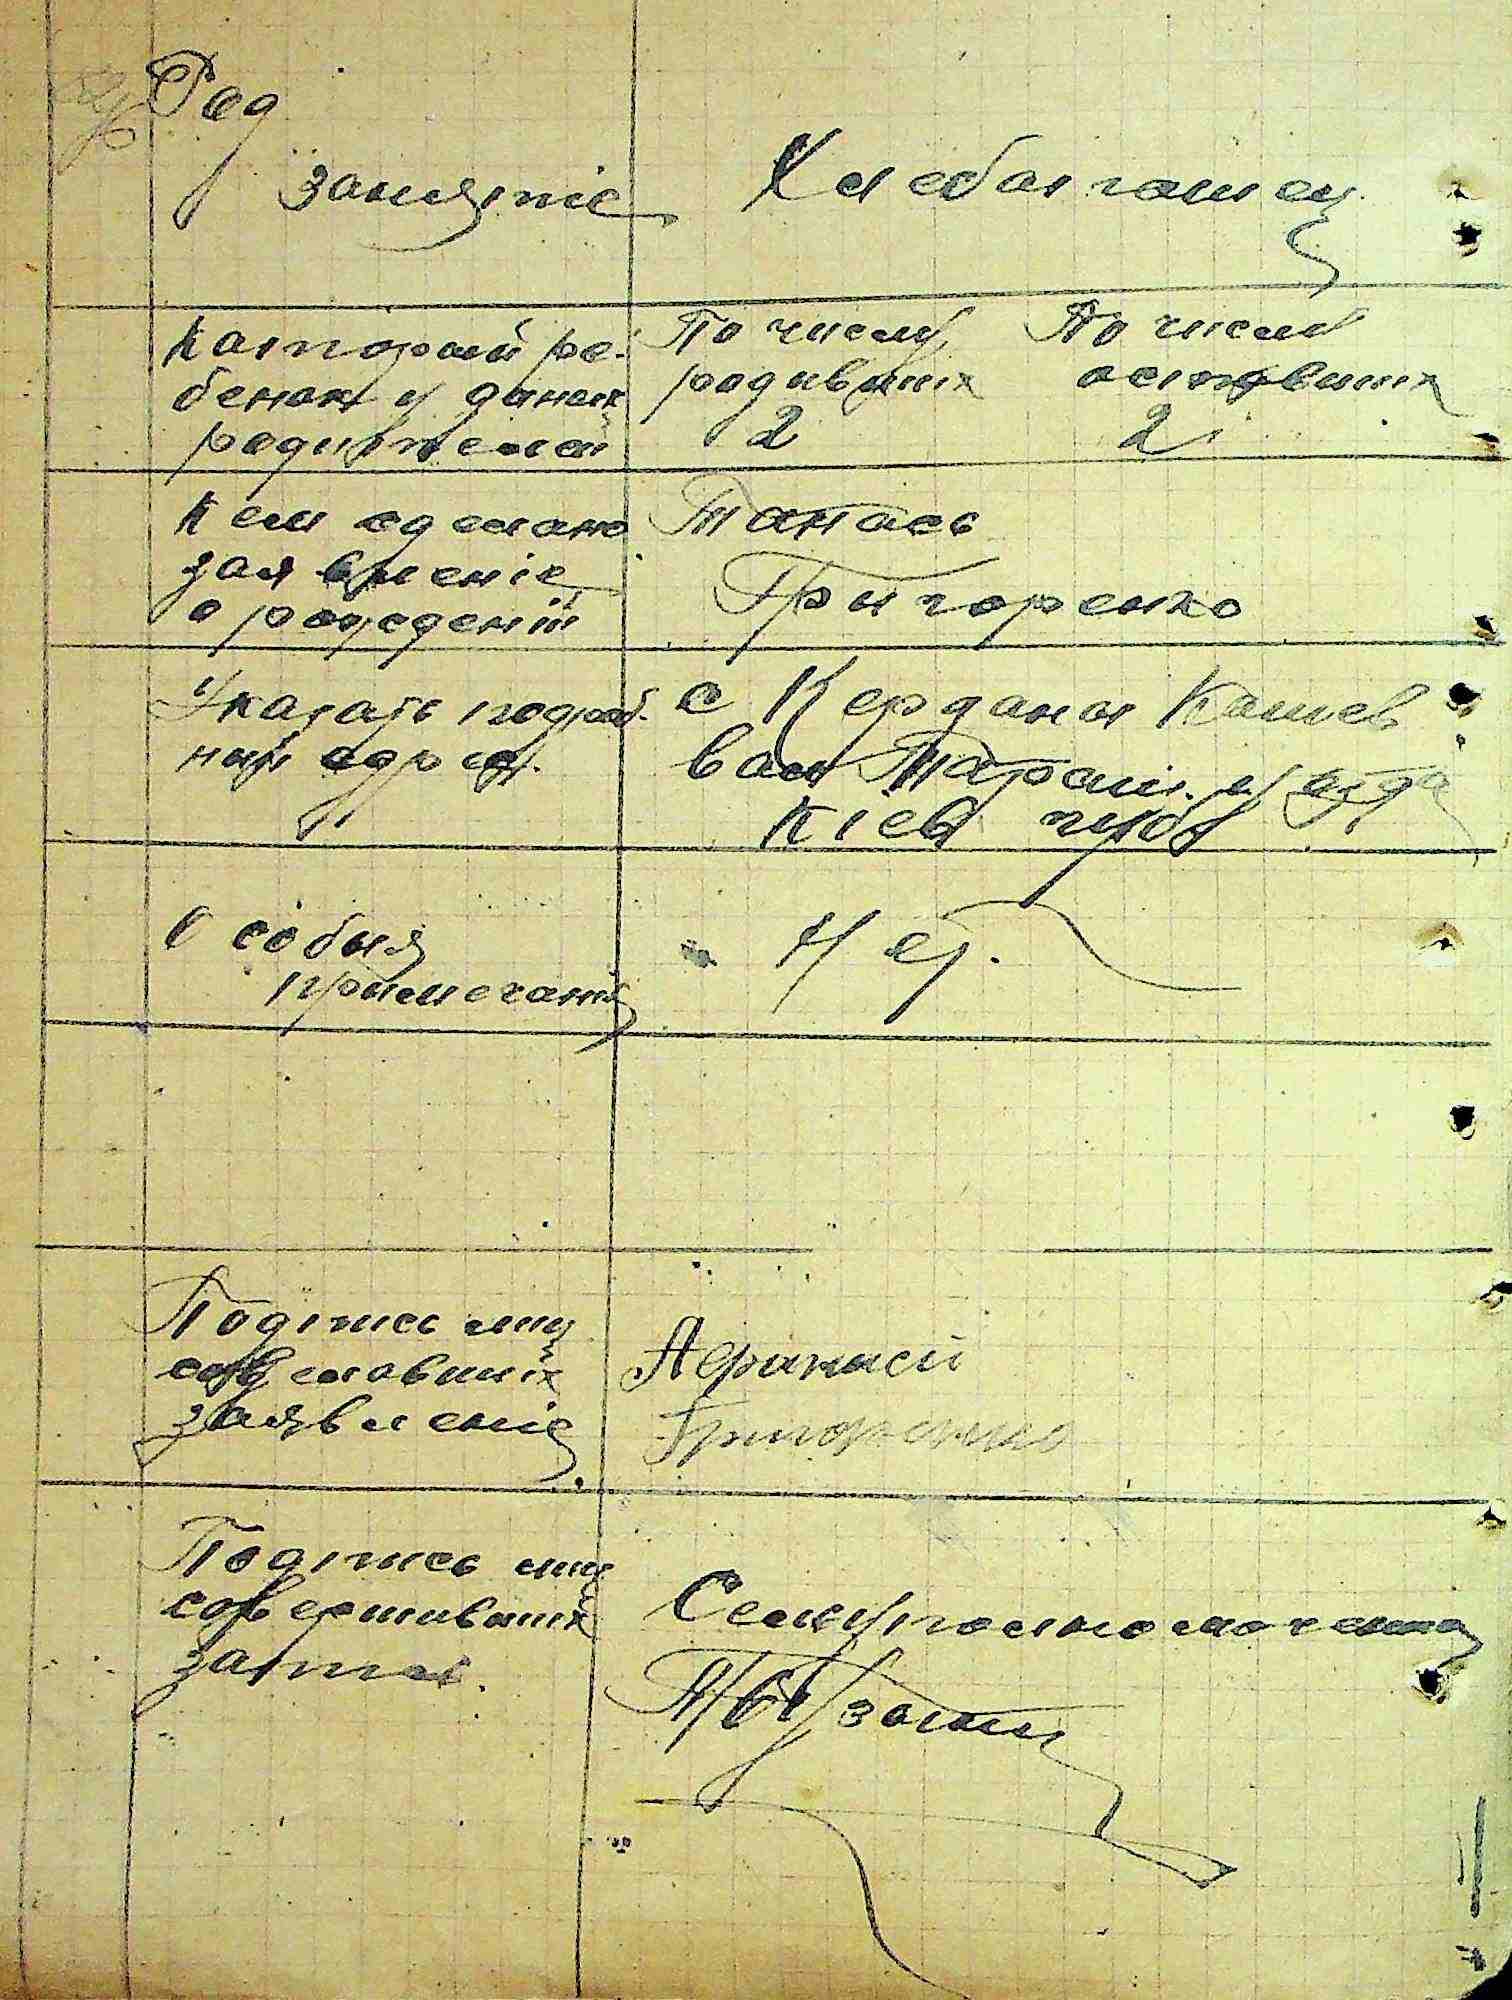 Род
занятіе
Хлебапашец
Каторый ре-
бенок у даных
родителей
По числу
родившихх
2
По числу
оставших
2
Кем сделано
заявленіе
о рождении
Танась
Григоренко
Указать подроб.
ный адрес.
с Керданы Кашев
вол Таращ. уезда
Кіев губ
Особыя
примечанія
Нет.
Подпись лиц
сделавших
заявленіе
Афанасій
Григоренко
Подпись лиц
совершивших
запись.
Сельуполномоченный